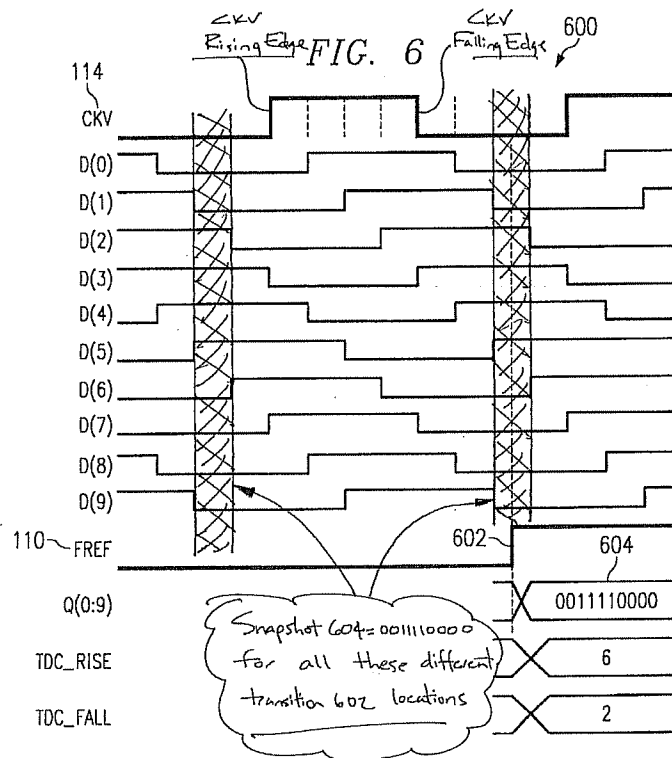 CKV
Rising Edge
FIG. 6
CKV
Falling Edge
600
114
CKV
D(0)
D(1)
D(2)
D(3)
D(4)
D(5)
D(6)
D(7)
D(8)
D(9)
110
FREF
602
604
Q(0:9)
0011110000
TDC_RISE
6
TDC_FALL
2
Snapshot 604=0011110000
for all these different
transition 602 locations